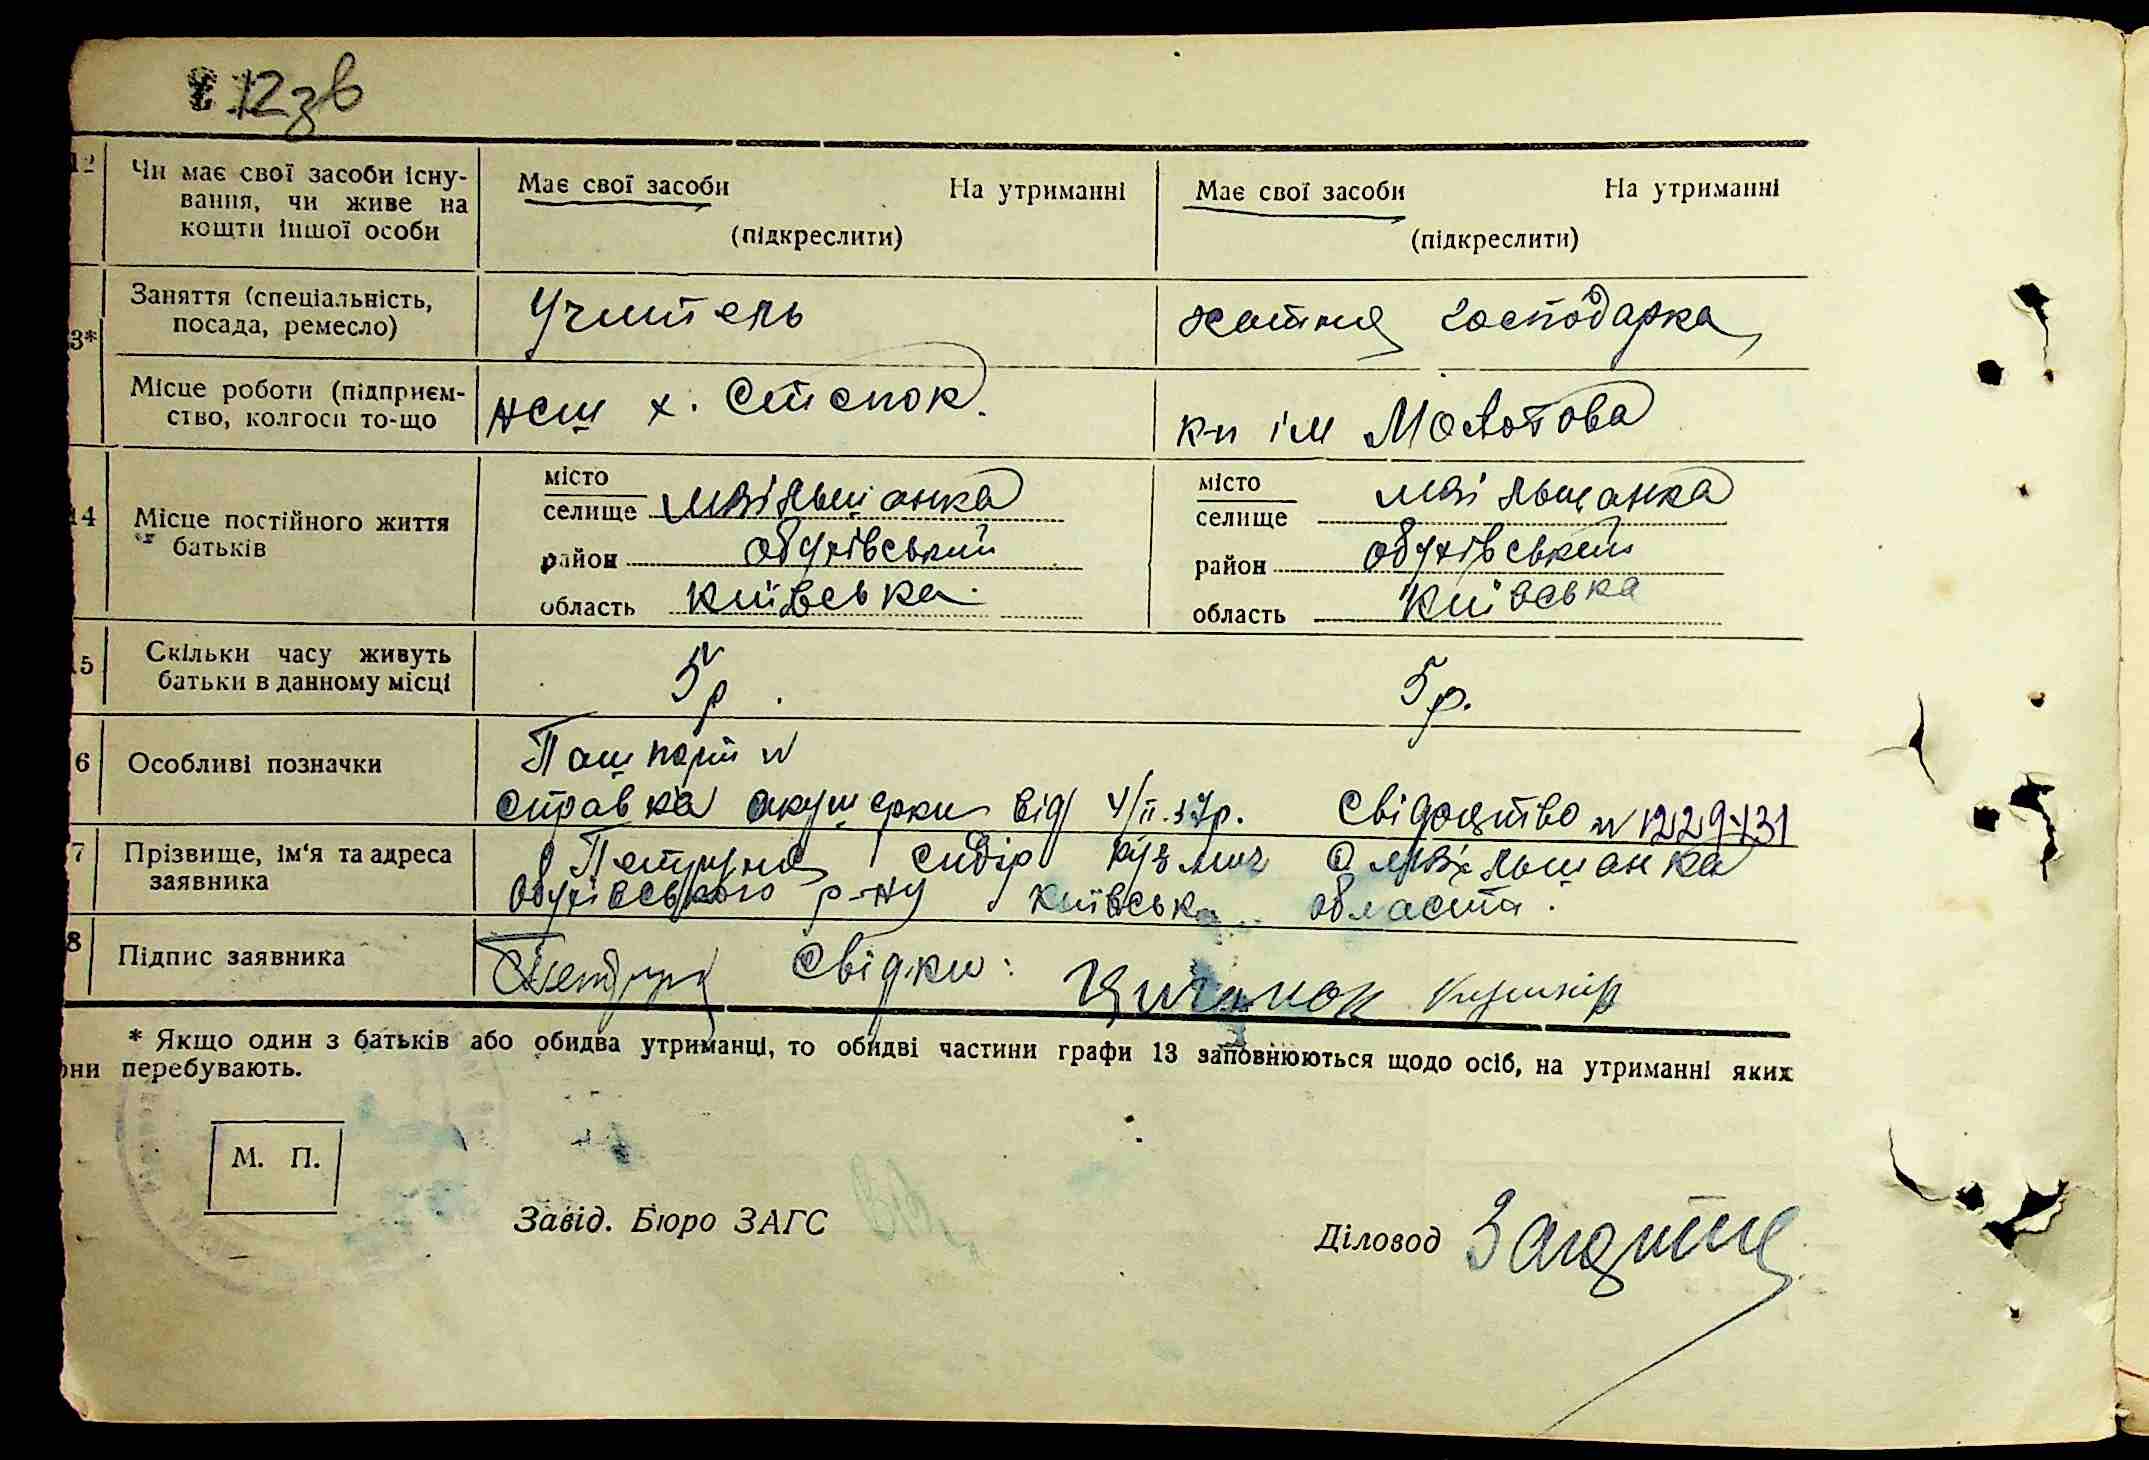 12 зв
12 Чи має свої засоби існу-
вання, чи живе на
кошти іншої особи
Має свої засоби На утриманні
(підкреслити)
Має свої засоби На утриманні
(підкреслити)
3* Заняття (спеціальність,
посада, ремесло)
Учитель
хатня господарка
Місце роботи (підприєм-
ство, колгосп то-що
НСШ х. Степок.
к-п ім Молотова
14 Місце постійного життя
батьків
місто
селище
район обухівський
область київська
місто
селище
район обухівський
область київська
15 Скільки часу живуть
батьки в данному місці
5 р.
5 р.
6 Особливі позначки
Пашпорт №
справка акушерки від 4/II.37р. Свідоцтво №
7 Прізвище, ім'я та адреса
заявника
Кузмич с
Обухівського р-ну київська область.
8 Підпис заявника
Свідки: Циганок
* Якщо один з батьків або обидва утриманці, то обидві частини графи 13 заповнюються щодо осіб, на утриманні яких
они перебувають.
М. П.
Завід. Бюро ЗАГС
Діловод